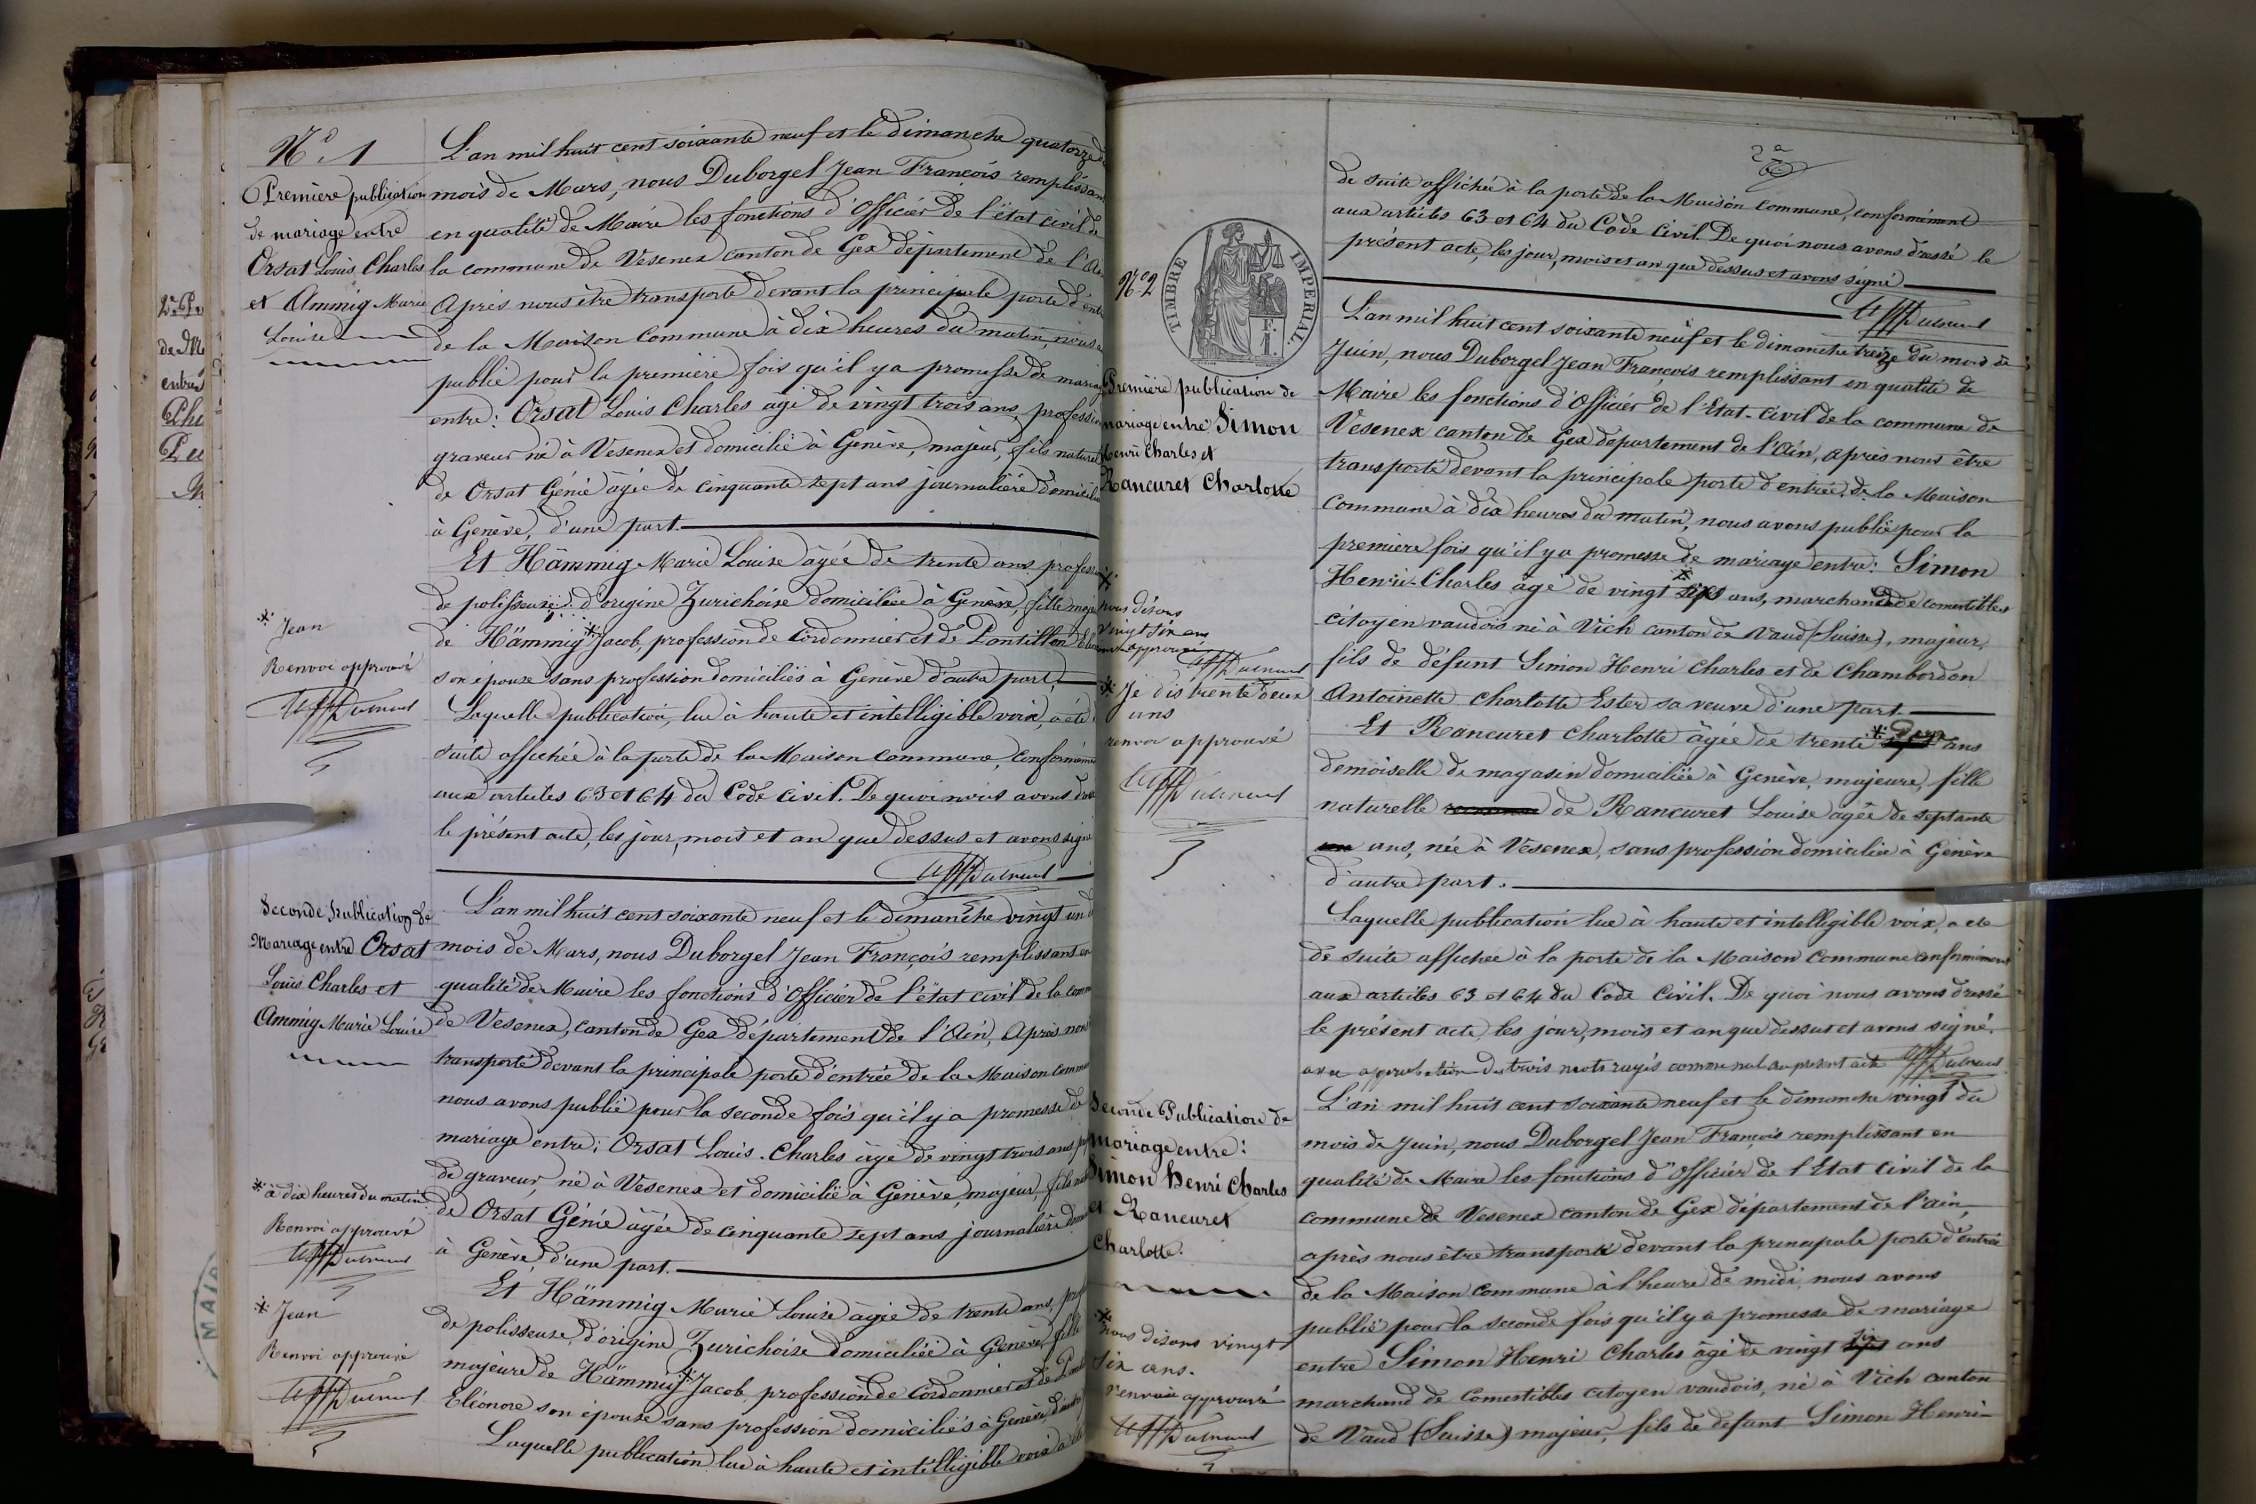 N.º 1
Première publication
de mariage entre
Orsat Louis Charles
et Ammig Marie
Louise
L'an mil huit cent soixante neuf et le dimanche quatorze
mois de Mars, nous Duborgel Jean François remplissant
en qualité de Maire les fonctions d'Officier de l'état civil de
la commune de Vesenex canton de Gex département de l'Ain
Après nous être transporté devant la principale porte d'entrée
de la Maison Commune à dix heures du matin, nous a
publié pour la première fois qu'il y a promesse de mariage
entre: Orsat Louis Charles agé de vingt trois ans, profession
graveur né à Vesenex et domicilié à Genève, majeur, fils naturel
de Orsat Génie âgée de cinquante sept ans journalière domicilié
à Genève, d'une part.
Et Hämmig Marie Louise âgée de trente ans profession
de polisseuse d'origine Zurichoise domiciliée à Genève, fille maje
de Hämmig * Jacob, profession de Cordonnier et de Pontillon El
son épouse sans profession domiciliés à Genève d'autre part,
Laquelle publication, lue à haute et intelligible voix, a été
suite affichée à la porte de la Maison Commune, conformément
aux articles 63 et 64 du Code civil. De quoi nous avons dressé
le présent acte, les jour, mois et an que dessus et avons signé
* Jean
Renvoi approuvé
Seconde Publication de
Mariage entre Orsat
Louis Charles et
Ammig Marie Louise
L'an mil huit cent soixante neuf et le dimanche vingt un d
mois de Mars, nous Duborgel Jean François remplissant en
qualité de Maire les fonctions d'Officier de l'état civil de la comm
de Vesenex, canton de Gex département de l'Ain, Après nous
transporté devant la principale porte d'entrée de la Maison commun
nous avons publié pour la seconde fois qu'il y a promesse de
mariage entre: Orsat Louis-Charles âgé de vingt trois ans pro
de graveur, né à Vesenex et domicilié à Genève, majeur, fils nat
de Orsat Génie âgée de cinquante sept ans journalière dom
à Genève, d'une part.
Et Hämmig Marie Louise âgée de trente ans, prof
de polisseuse, d'origine Zurichoise domiciliée à Genève, fille
majeure de Hämmig * Jacob profession de Cordonnier et de Pont
Eléonore son épouse sans profession domiciliés à Genève, d'autre
Laquelle publication lue à haute et intelligible voix a été
* à dix heures du matin
Renvoi approuvé
* Jean
Renvoi approuvé
MAIR
2e
de suite affichée à la porte de la Maison commune, conformément
aux articles 63 et 64 du Code Civil. De quoi nous avons dressé le
présent acte, les jour, mois et an que dessus et avons signé
N.º 2
TIMBRE IMPERIAL.
Première publication de
mariage entre Simon
Henri Charles et
Rancuret Charlotte
L'an mil huit cent soixante neuf et le dimanche treize du mois de
Juin, nous Duborgel Jean François remplissant en qualité de
Maire les fonctions d'Officier de l'Etat-civil de la commune de
Vesenex canton de Gex département de l'Ain, après nous être
transporté devant la principale porte d'entrée de la Maison
Commune à dix heures du matin, nous avons publié pour la
première fois qu'il y a promesse de mariage entre: Simon
Henri-Charles âgé de vingt * sept ans, marchand de comestibles
citoyen vaudois né à Vich canton de Vaud (Suisse), majeur,
fils de défunt Simon Henri Charles et de Chambordon
Antoinette Charlotte Ester sa veuve d'une part
Et Rancuret Charlotte âgée de trente * deux ans
demoiselle de magasin domiciliée à Genève, majeure, fille
naturelle de Rancuret Louise agée de septante
ans, née à Vesenex, sans profession domiciliée à Genève
d'autre part.
Laquelle publication lue à haute et intelligible voix, a été
de suite affichée à la porte de la Maison Commune conformément
aux articles 63 et 64 du Code Civil. De quoi nous avons dressé
le présent acte, les jour, mois et an que dessus et avons signé.
avec approbation de trois mots rayés comme nul au présent acte
* nous disons
vingt six ans
approuvé
* Je dis trente deux
ans
renvoi approuvé
Seconde Publication de
mariage entre:
Simon Henri Charles
et Rancuret
Charlotte.
L'an mil huit cent soixante neuf et le dimanche vingt du
mois de Juin, nous Duborgel Jean François remplissant en
qualité de Maire les fonctions d'Officier de l'Etat Civil de la
commune de Vesenex canton de Gex département de l'ain,
après nous être transporté devant la principale porte d'entrée
de la Maison Commune à l'heure de midi, nous avons
publié pour la seconde fois qu'il y a promesse de mariage
entre Simon Henri Charles âgé de vingt six ans
marchand de Comestibles citoyen vaudois, né à Vich canton
de Vaud (Suisse) majeur, fils de défunt Simon Henri-
* nous disons vingt
six ans.
renvoi approuvé